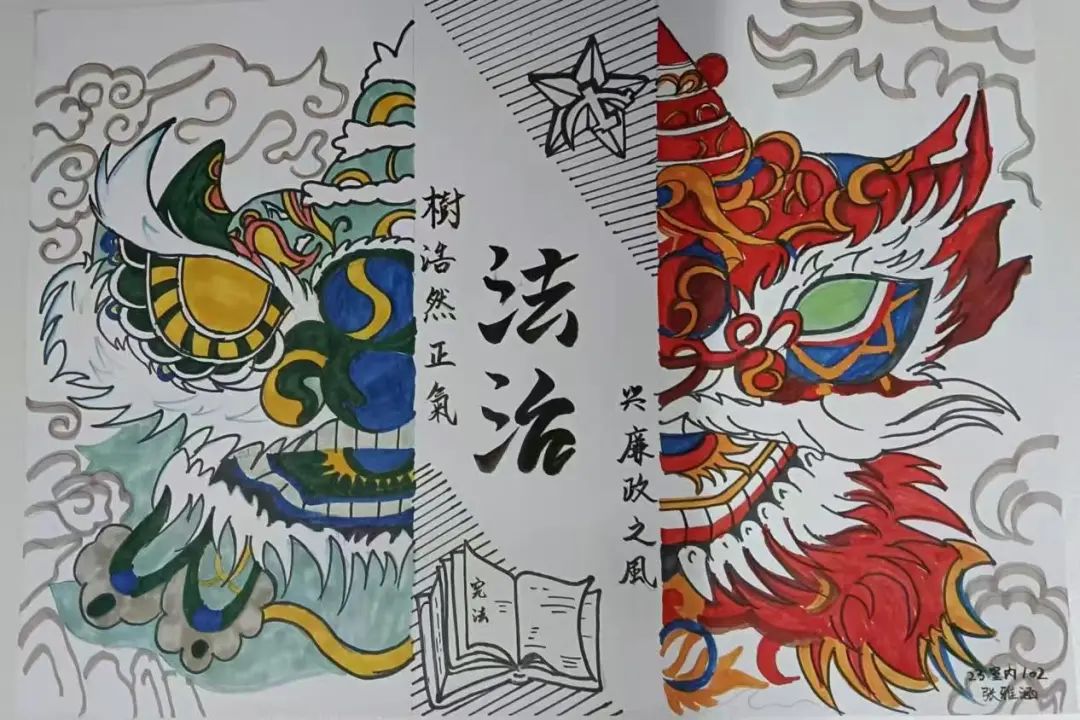 樹浩然正氣
法治
兴廉政之風
宪法
23室内102
张雅涵